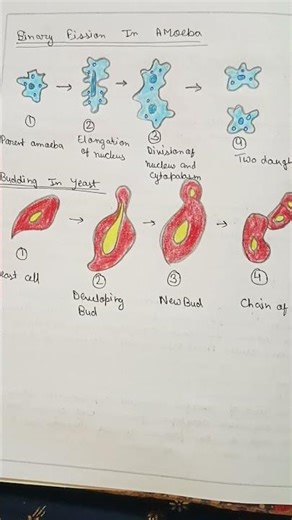 Binary Fission In AMoeba
①
Parent amoeba
②
Elongation
of nucleus
③
Division of
nucleus and
Cytoplasm
④
Two daugh
Budding In Yeast
①
east cell
②
Developing
Bud
③
New Bud
④
Chain of